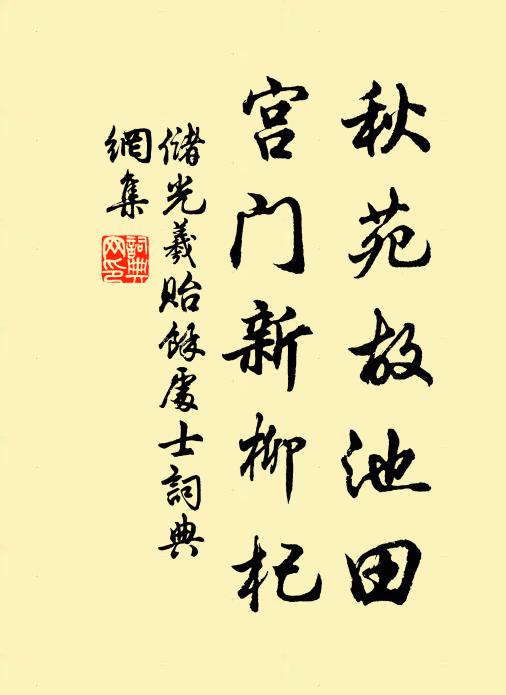 秋苑故池田
宫门新柳杞
储光羲贻馀处士词典
网集
词典网印